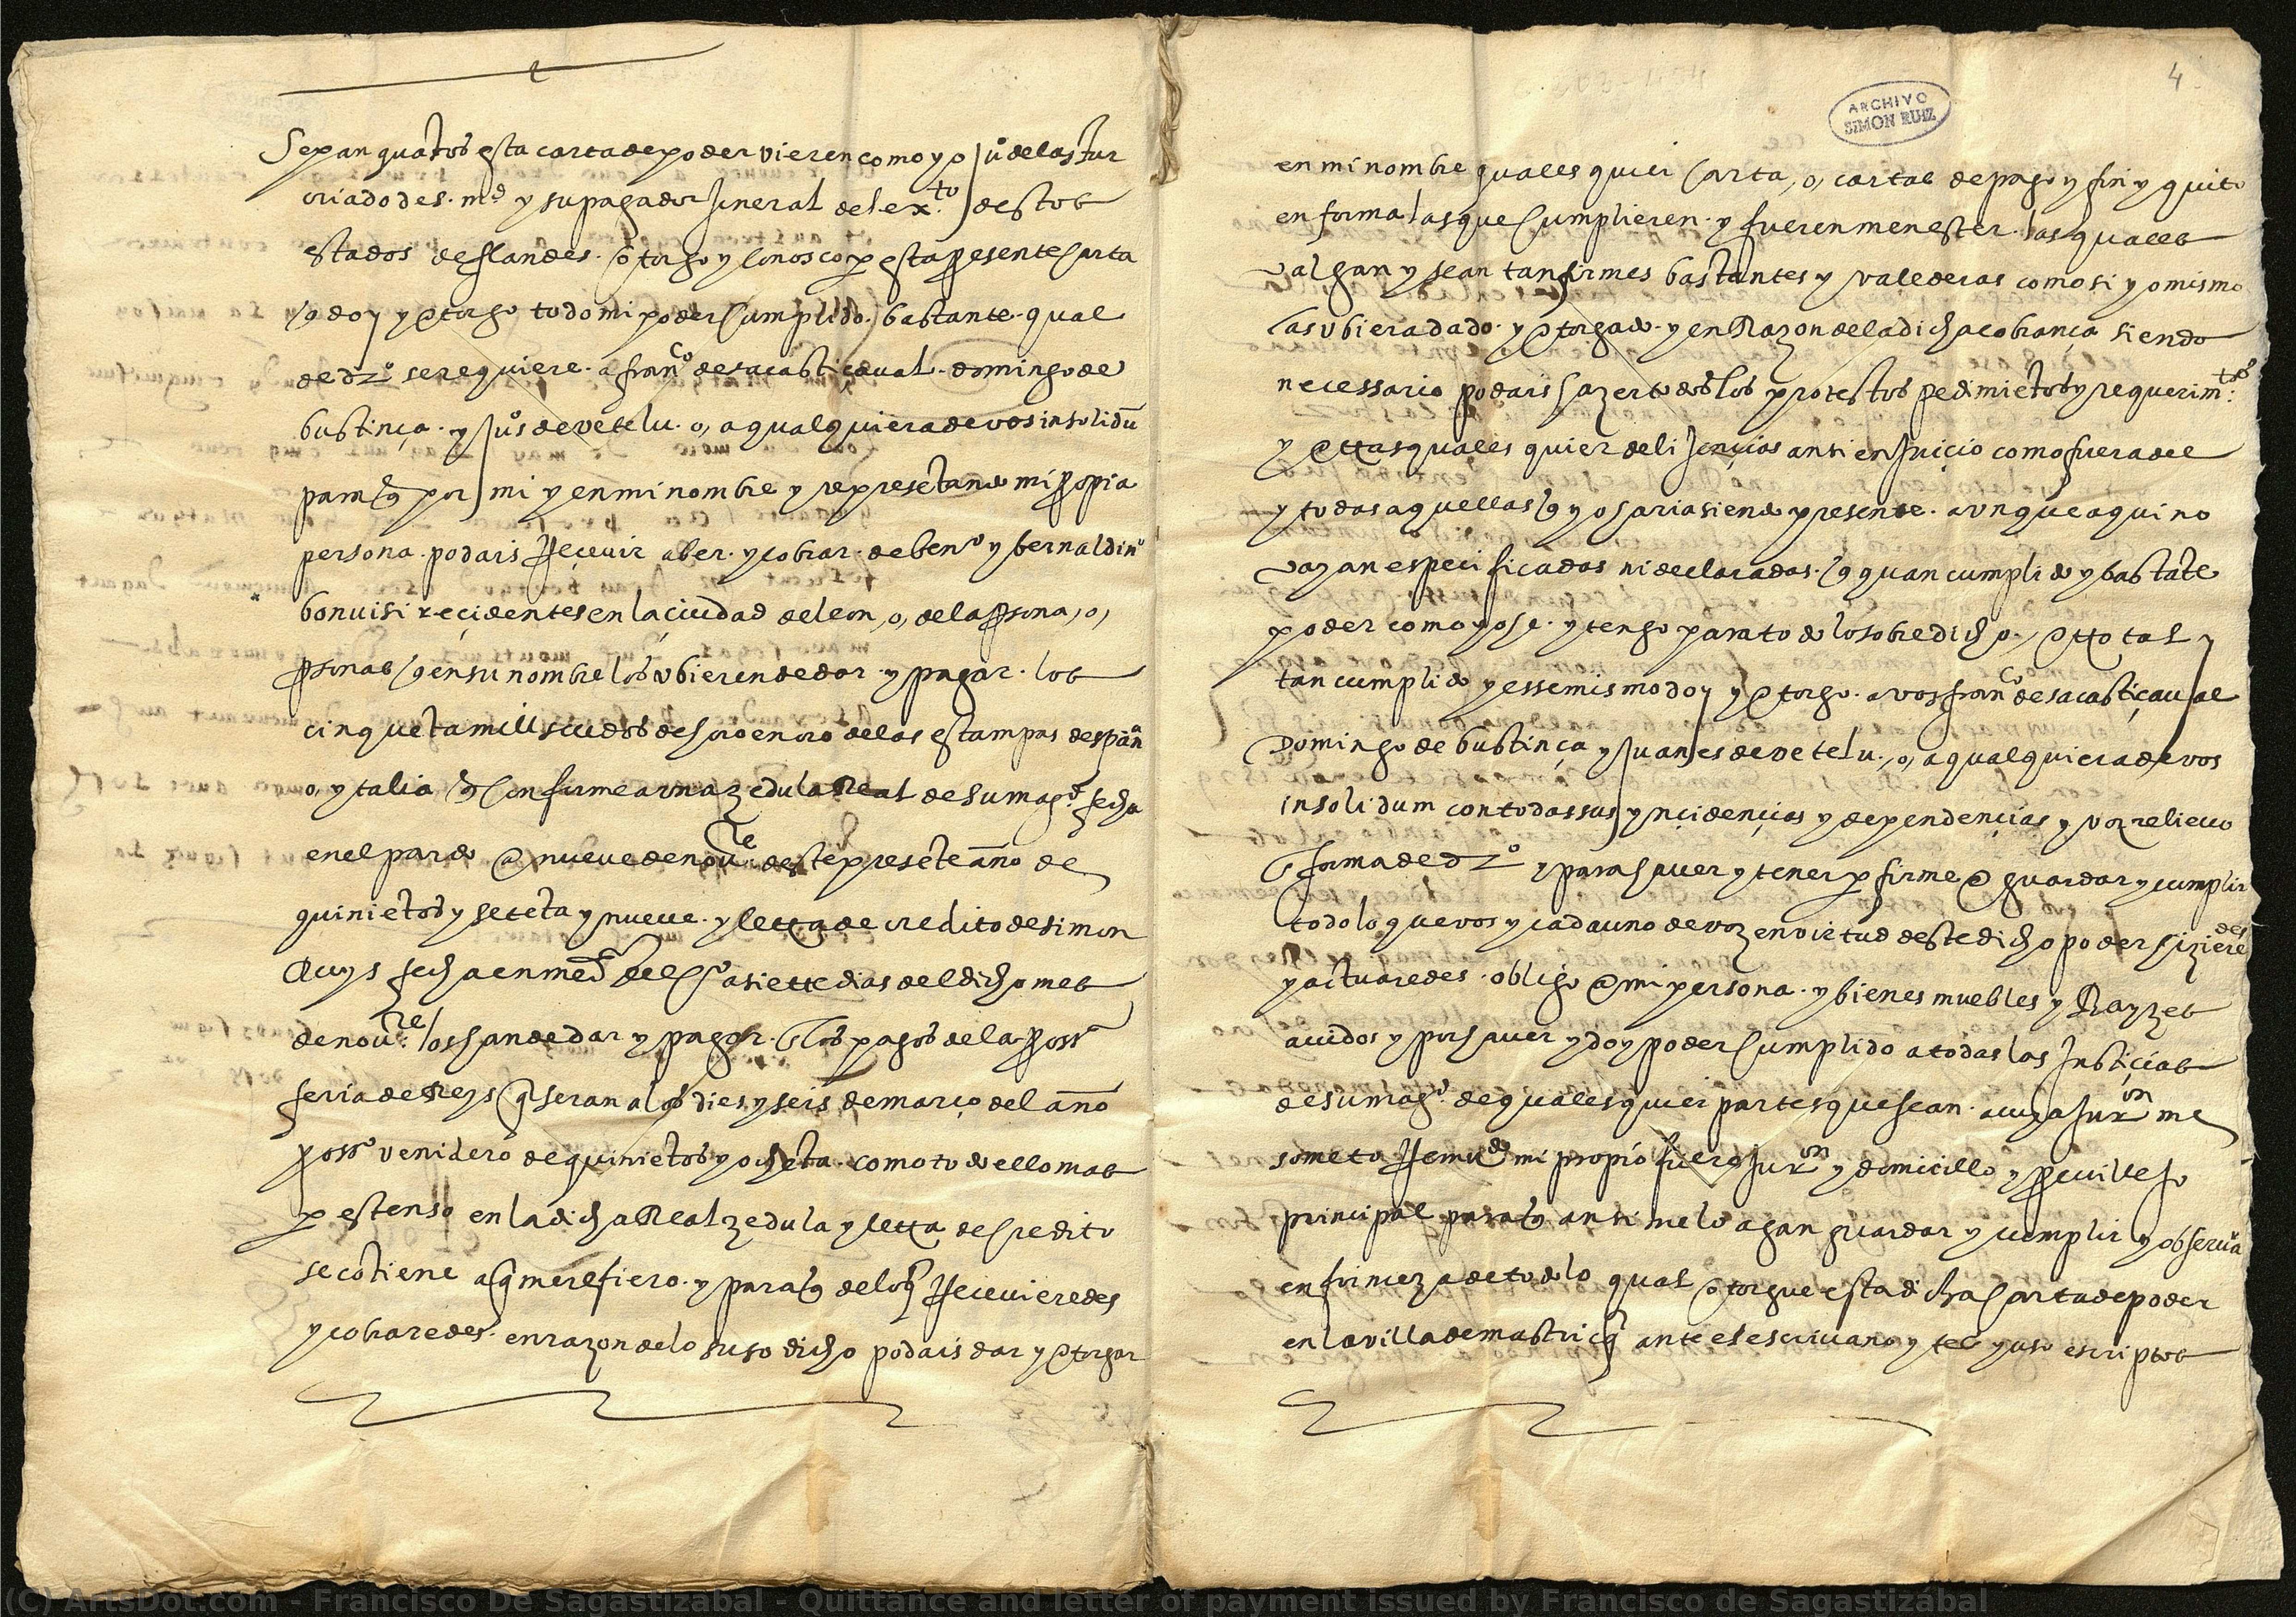 Sepan quãtos esta carta de poder vieren como yo juº de lastur
criado de s. mᵈ y su pagador jeneral del exᵗᵒ destos
estados de flandes. otorgo y conosco p esta presente carta
q doy y otorgo todo mi poder cumplido bastante qual
de dzº se requiere a franᶜᵒ de sacastiçaval domingo de
bustinça y juºs de vetelu o, a qualquiera de vos insolidũ
para q por mi y en mi nombre y represẽtando mi propia
persona podais Recevir aber y cobrar de benº y bernaldinº
bonuisi recidentes en la çiudad de leon, o, de la psona, o,
psonas q en su nombre los ubieren de dar y pagar los
cinquẽta mill scudos de oro en oro de las estampas despãn
o, ytalia q conforme a una zedula Real de su magᵈ fecha
en el pardo a nueve de nouᵉ deste presẽte año de
quiniẽtos y setẽta y nueve y letra de credito de simon
Ruys fecha en medª del cº a siette dias del dicho mes
de nouᵉ los han de dar y pagar los pagos de la pssª
feria de Reys q seran a los dies y seis de março del año
possº venidero de quiniẽtos y ochẽta como todo ello mas
p estenso en la dicha Real zedula y letra de credito
se cõtiene a q me refiero y para q de los q Recevieredes
y cobraredes en razon de lo suso dicho podais dar y otorgar
4
ARCHIVO
SIMON RUIZ
en mi nombre quales quier carta, o, cartas de pago y fin y quito
en forma las que cumplieren y fueren menester las quales
valgan y sean tan firmes bastantes y valederas como si yo mismo
las ubiera dado y otorgado y en Razon de la dicha cobranca siendo
necessario podais hazer todos los protestos pedimiẽtos y requerimᵗᵒˢ
y ottras quales quier delijençias ansi en juiçio como fuera del
y todas aquellas q yo haria siendo presente aunque aqui no
vayan especificadas ni declaradas q quan cumplido y bastãte
poder como yo he y tengo para todo lo sobredicho, otto tal y
tan cumplido y esse mismo doy y otorgo a vos franᶜᵒ de sacastiçaval
Domingo de bustinça y juanes de vetelu, o, a qualquiera de vos
insolidum con todas sus ynçidençias y dependençias y vos relievo
forma de dzº y para haver y tener p firme guardar y cumplir
todo lo que vos y cada uno de vos en virtud deste dicho poder hizieredes
y actuaredes obligo mi persona y bienes muebles y Rayzes
avidos y por haver y doy poder cumplido a todas las Justiçias
de su magᵈ de quales quier partes que sean a cuya jurᵒⁿ me
someto Remdº mi propio fuero jurᵒⁿ y domicillo y previllejo
principal para q ansi me lo agan guardar y cumplir y observar
en firmeza de todo lo qual otorgue esta dicha carta de poder
en la villa de mastricq ante el escrivano y tes yuso escriptos
(C) ArtsDot.com - Francisco De Sagastizabal - Quittance and letter of payment issued by Francisco de Sagastizábal